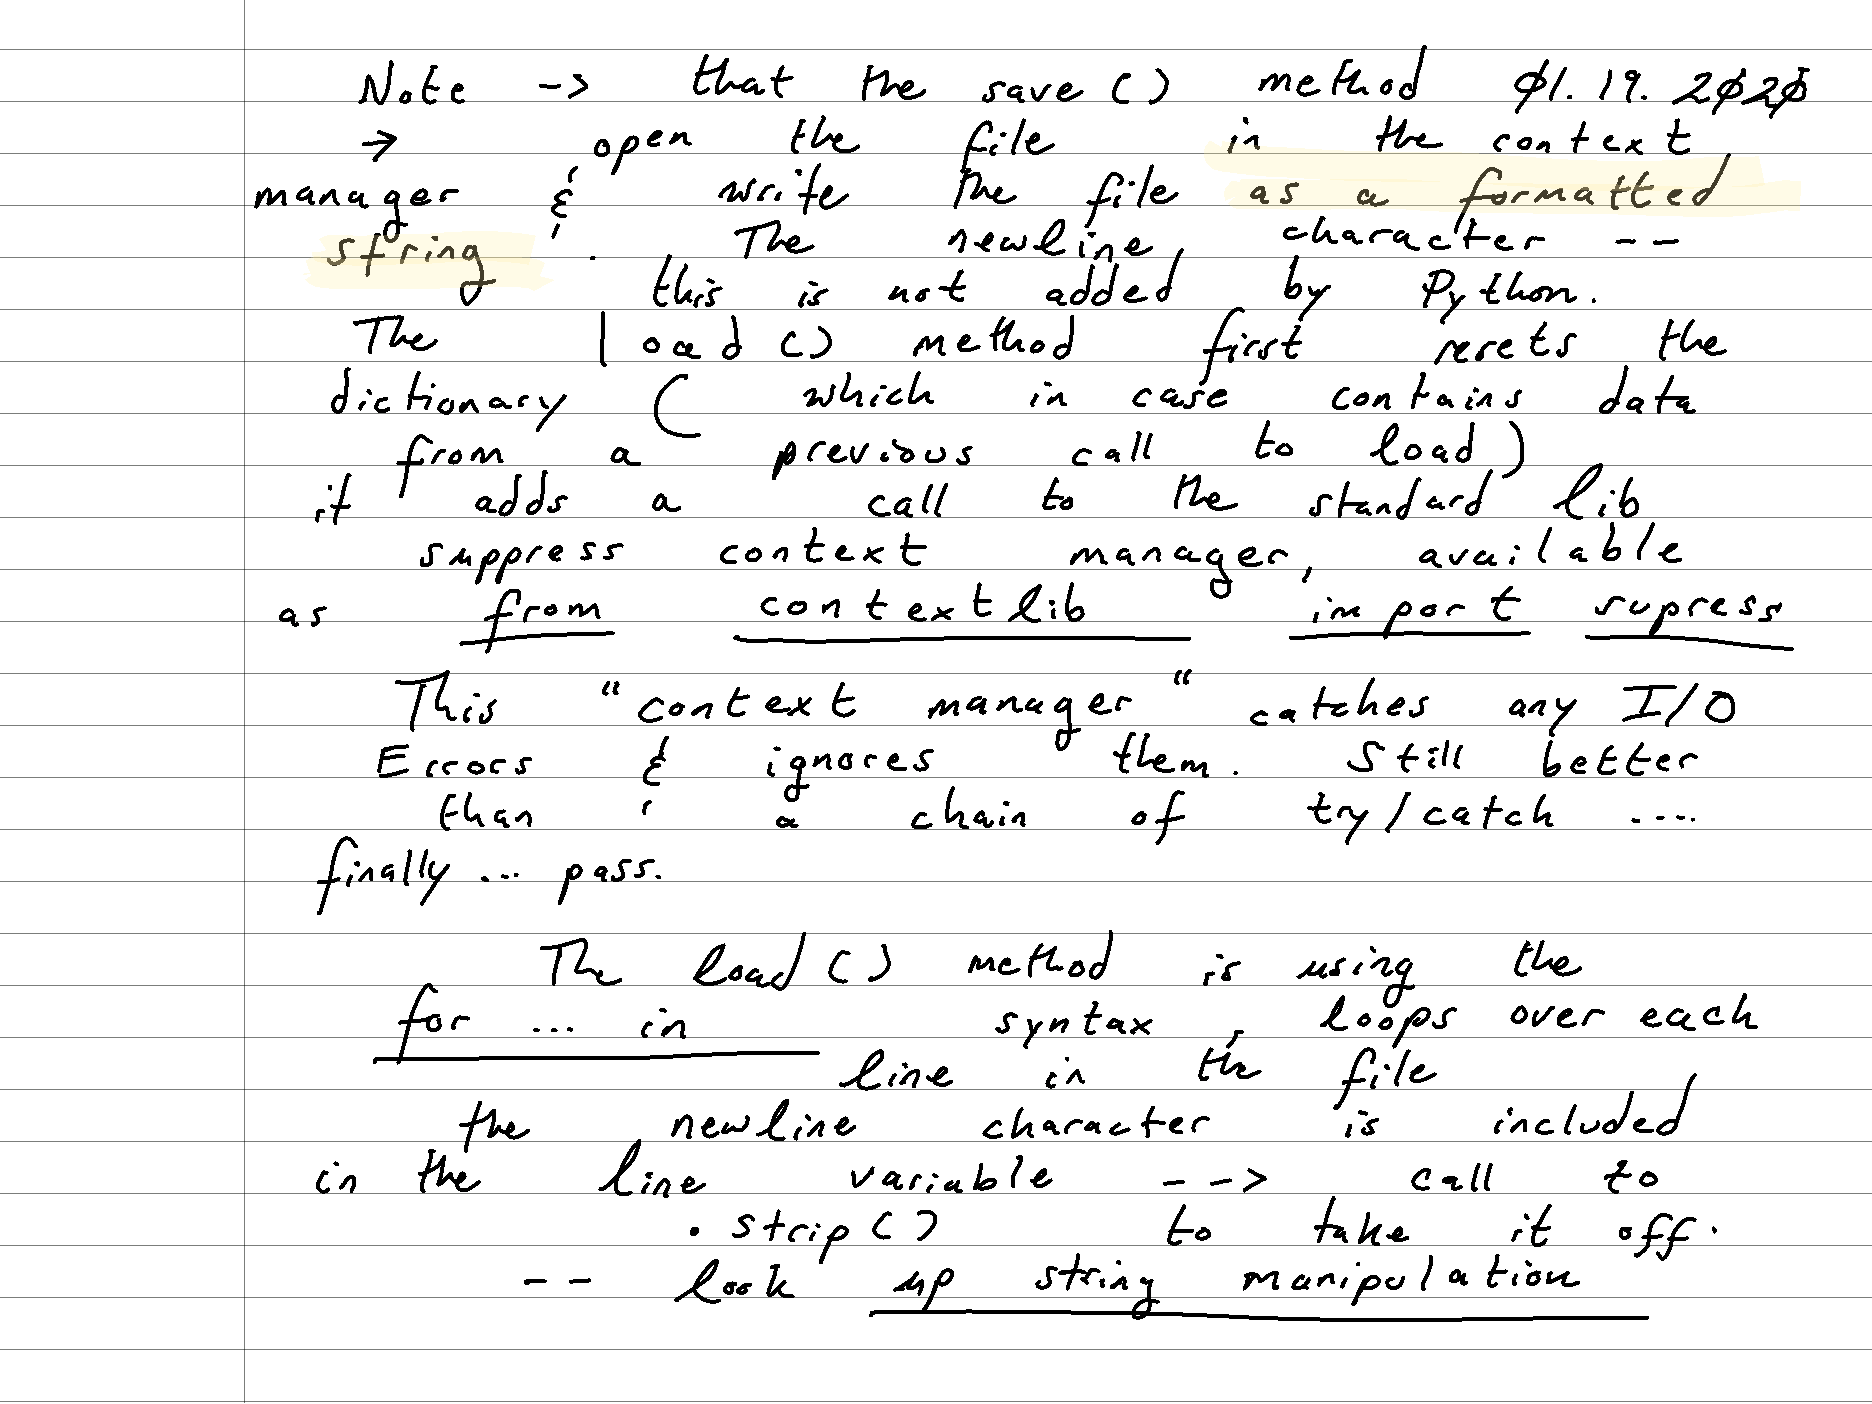 Note -> that the save() method 01.19.2020
→ open the file in the context
manager & write the file as a formatted
string. The newline character --
this is not added by Python.
The load() method first resets the
dictionary (which in case contains data
from a previous call to load)
it adds a call to the standard lib
suppress context manager, available
as from contextlib import supress
This "context manager" catches any I/O
Errors & ignores them. Still better
than a chain of try/catch ....
finally ... pass.
The load() method is using the
for ... in syntax, loops over each
line in the file
the newline character is included
in the line variable --> call to
.strip() to take it off.
-- look up string manipulation